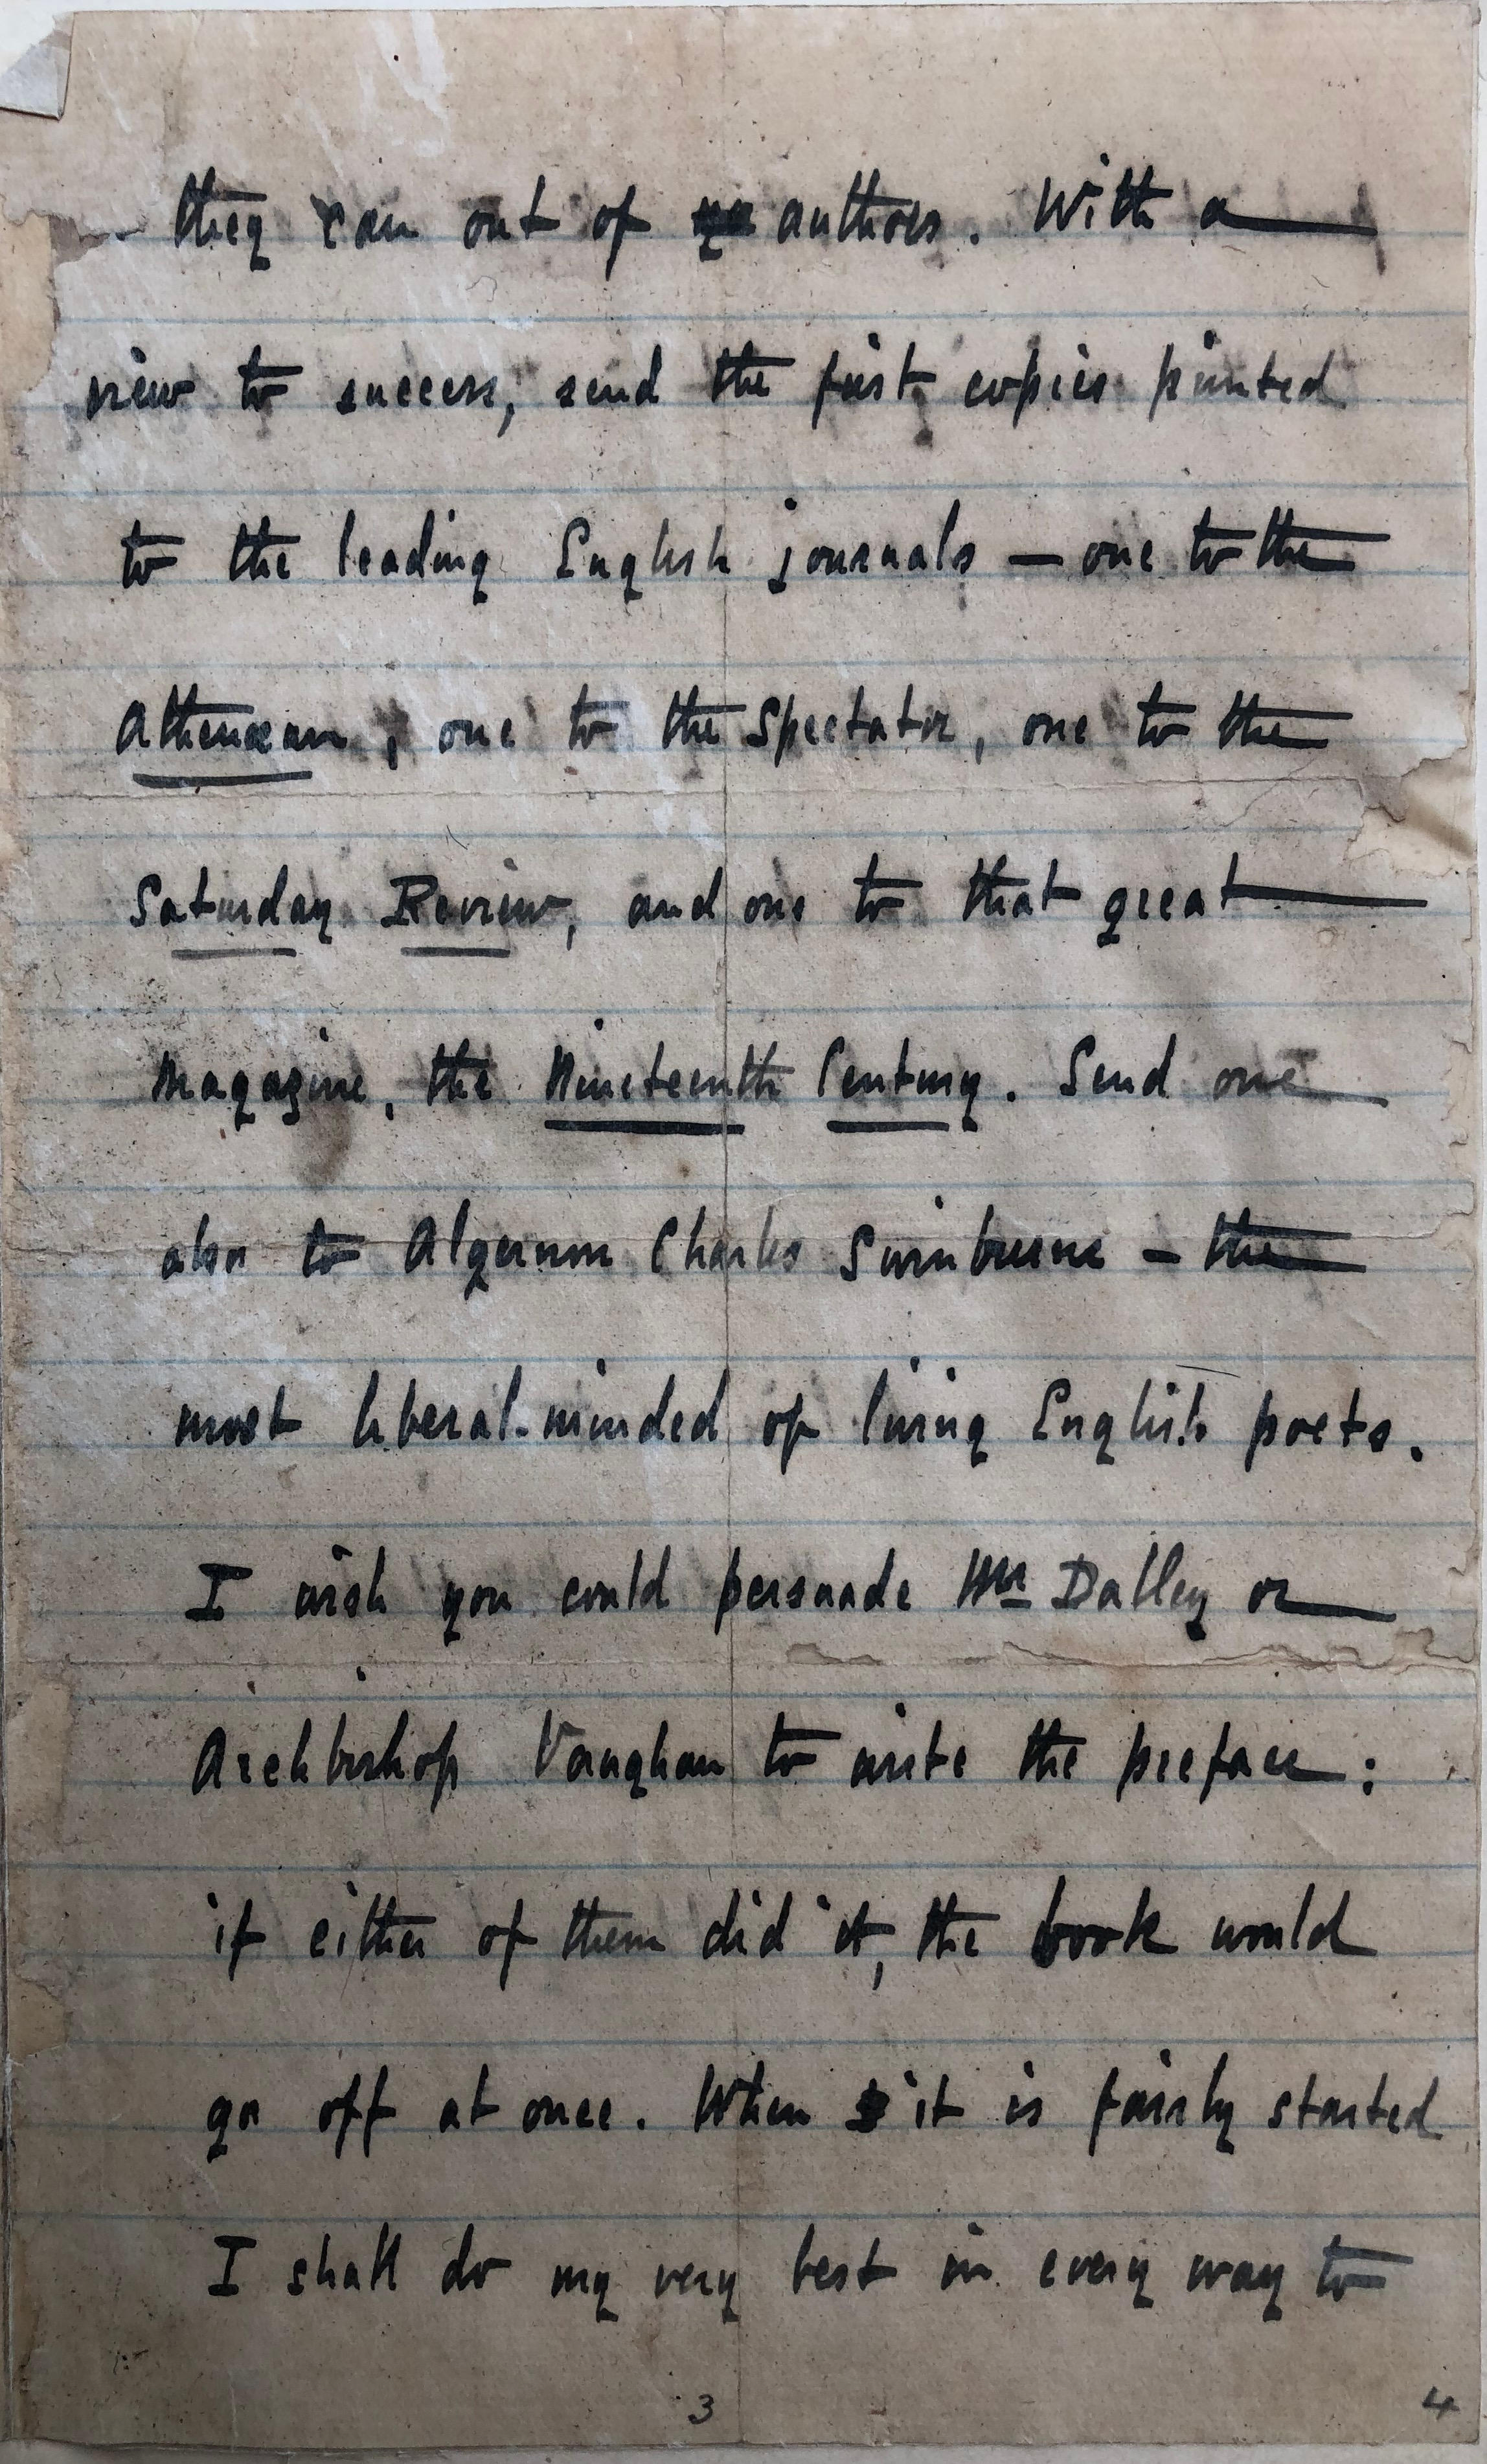 they can out of authors. With a
view to success, send the first copies printed
to the leading English journals — one to the
Athenæum, one to the Spectator, one to the
Saturday Review, and one to that great
Magazine, the Nineteenth Century. Send one
also to Algernon Charles Swinburne – the
most liberal-minded of living English poets.
I wish you could persuade Mr Dalley or
Archbishop Vaughan to write the preface:
if either of them did it, the book would
go off at once. When it is fairly started
I shall do my very best in every way to
3 4